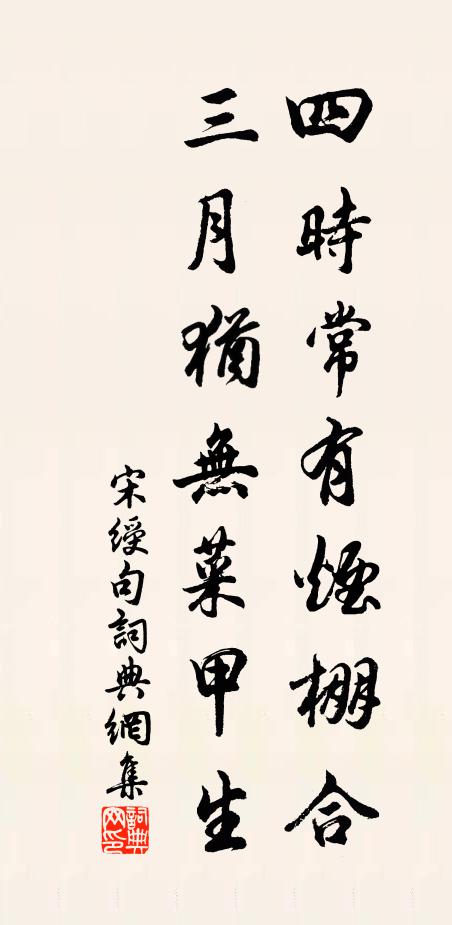 四時常有煙棚合
三月猶無菜甲生
宋綬句詞典網集
詞典網印